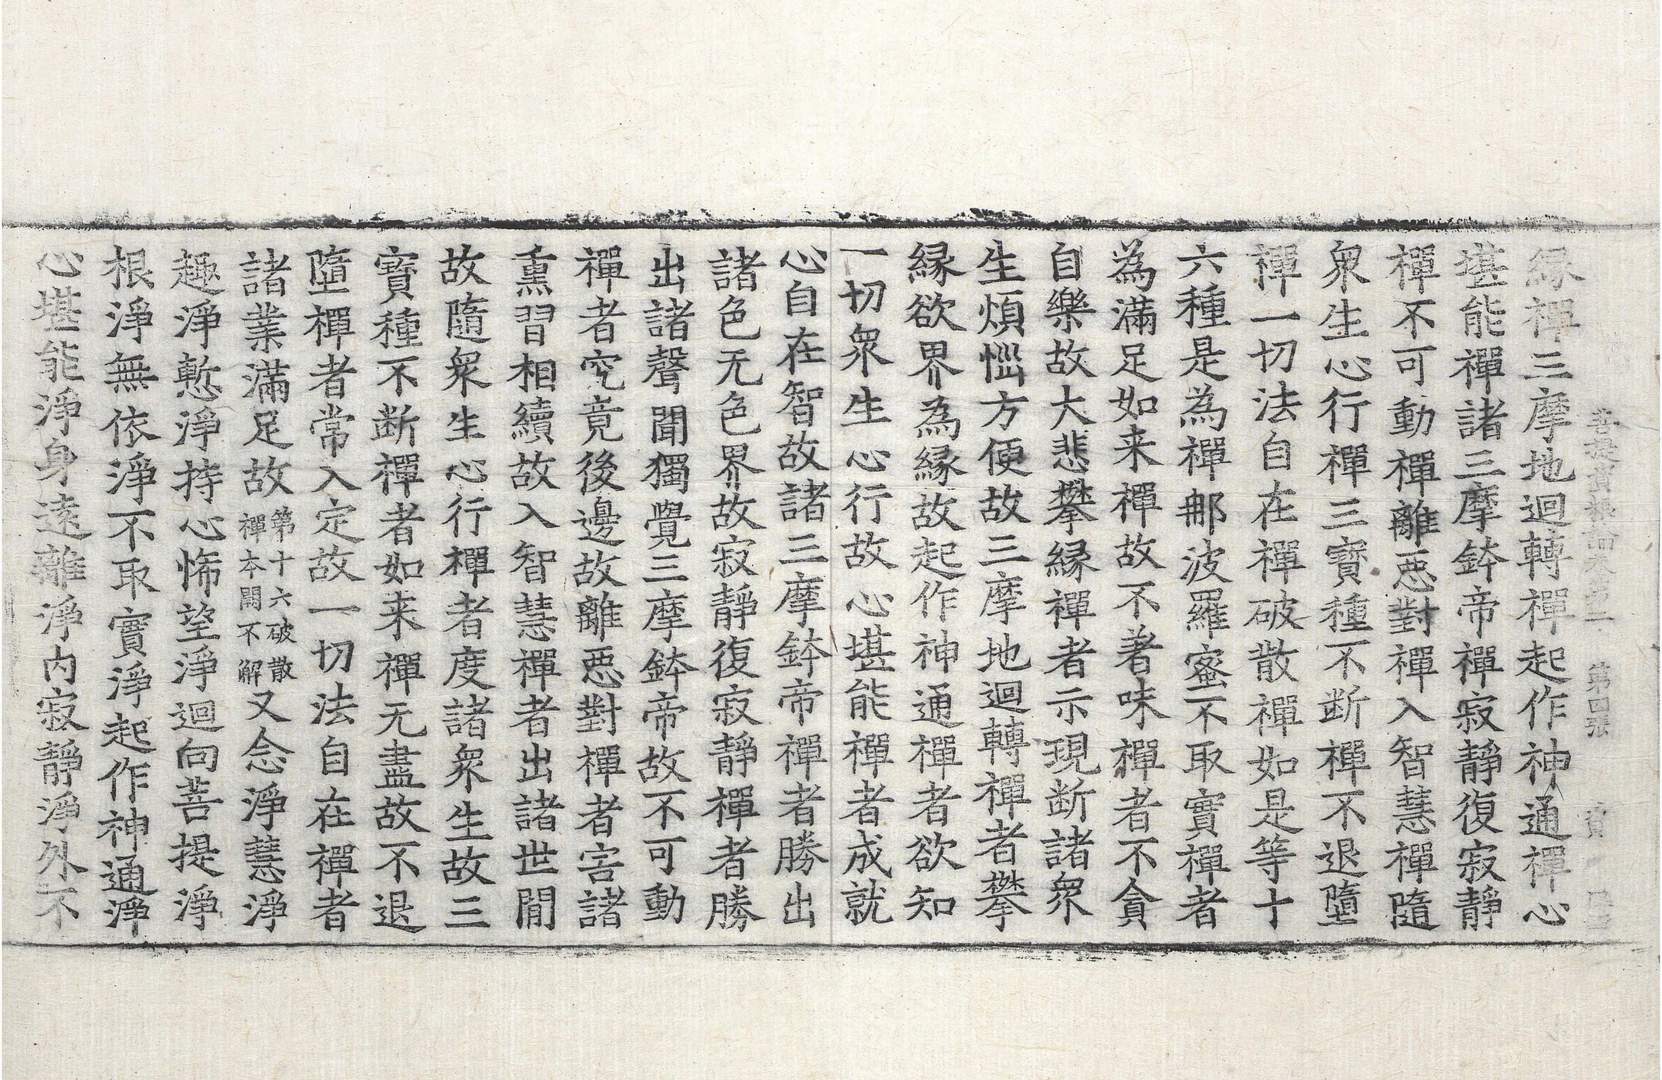 菩提資粮論卷第二　第四張　寶
縁禪三摩地迴轉禪起作神通禪心
堪能禪諸三摩鉢帝禪寂靜復寂靜
禪不可動禪離惡對禪入智慧禪隨
衆生心行禪三寶種不断禪不退墮
禪一切法自在禪破散禪如是等十
六種是為禪那波羅蜜不取實禪者
為滿足如来禪故不著味禪者不貪
自樂故大悲攀縁禪者示現断諸衆
生煩惱方便故三摩地迴轉禪者攀
縁欲界為縁故起作神通禪者欲知
一切衆生心行故心堪能禪者成就
心自在智故諸三摩鉢帝禪者勝出
諸色无色界故寂靜復寂靜禪者勝
出諸聲聞獨覺三摩鉢帝故不可動
禪者究竟後邊故離惡對禪者害諸
熏習相續故入智慧禪者出諸世間
故隨衆生心行禪者度諸衆生故三
寶種不断禪者如来禪无盡故不退
墮禪者常入定故一切法自在禪者
諸業滿足故第十六破散禪本闕不解又念淨慧淨
趣淨慙淨持心悕望淨迴向菩提淨
根淨無依淨不取實淨起作神通淨
心堪能淨身遠離淨內寂靜淨外不